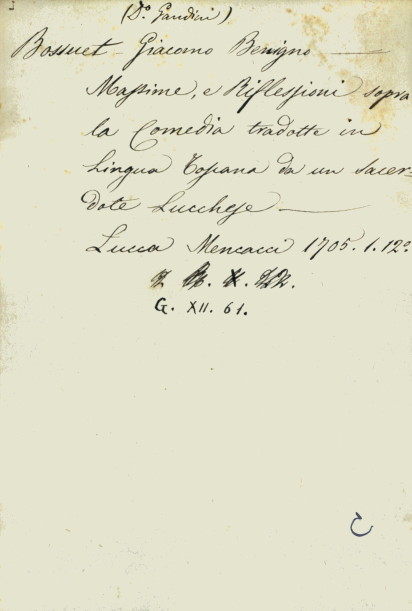 (D.º Gandini)
Bossuet Giacomo Benigno —
Massime, e Riflessioni sopra
la Comedia tradotte in
Lingua Toscana da un Sacer-
dote Lucchese —
Lucca Mencacci 1705. 1. 12º
G. XII. 61.